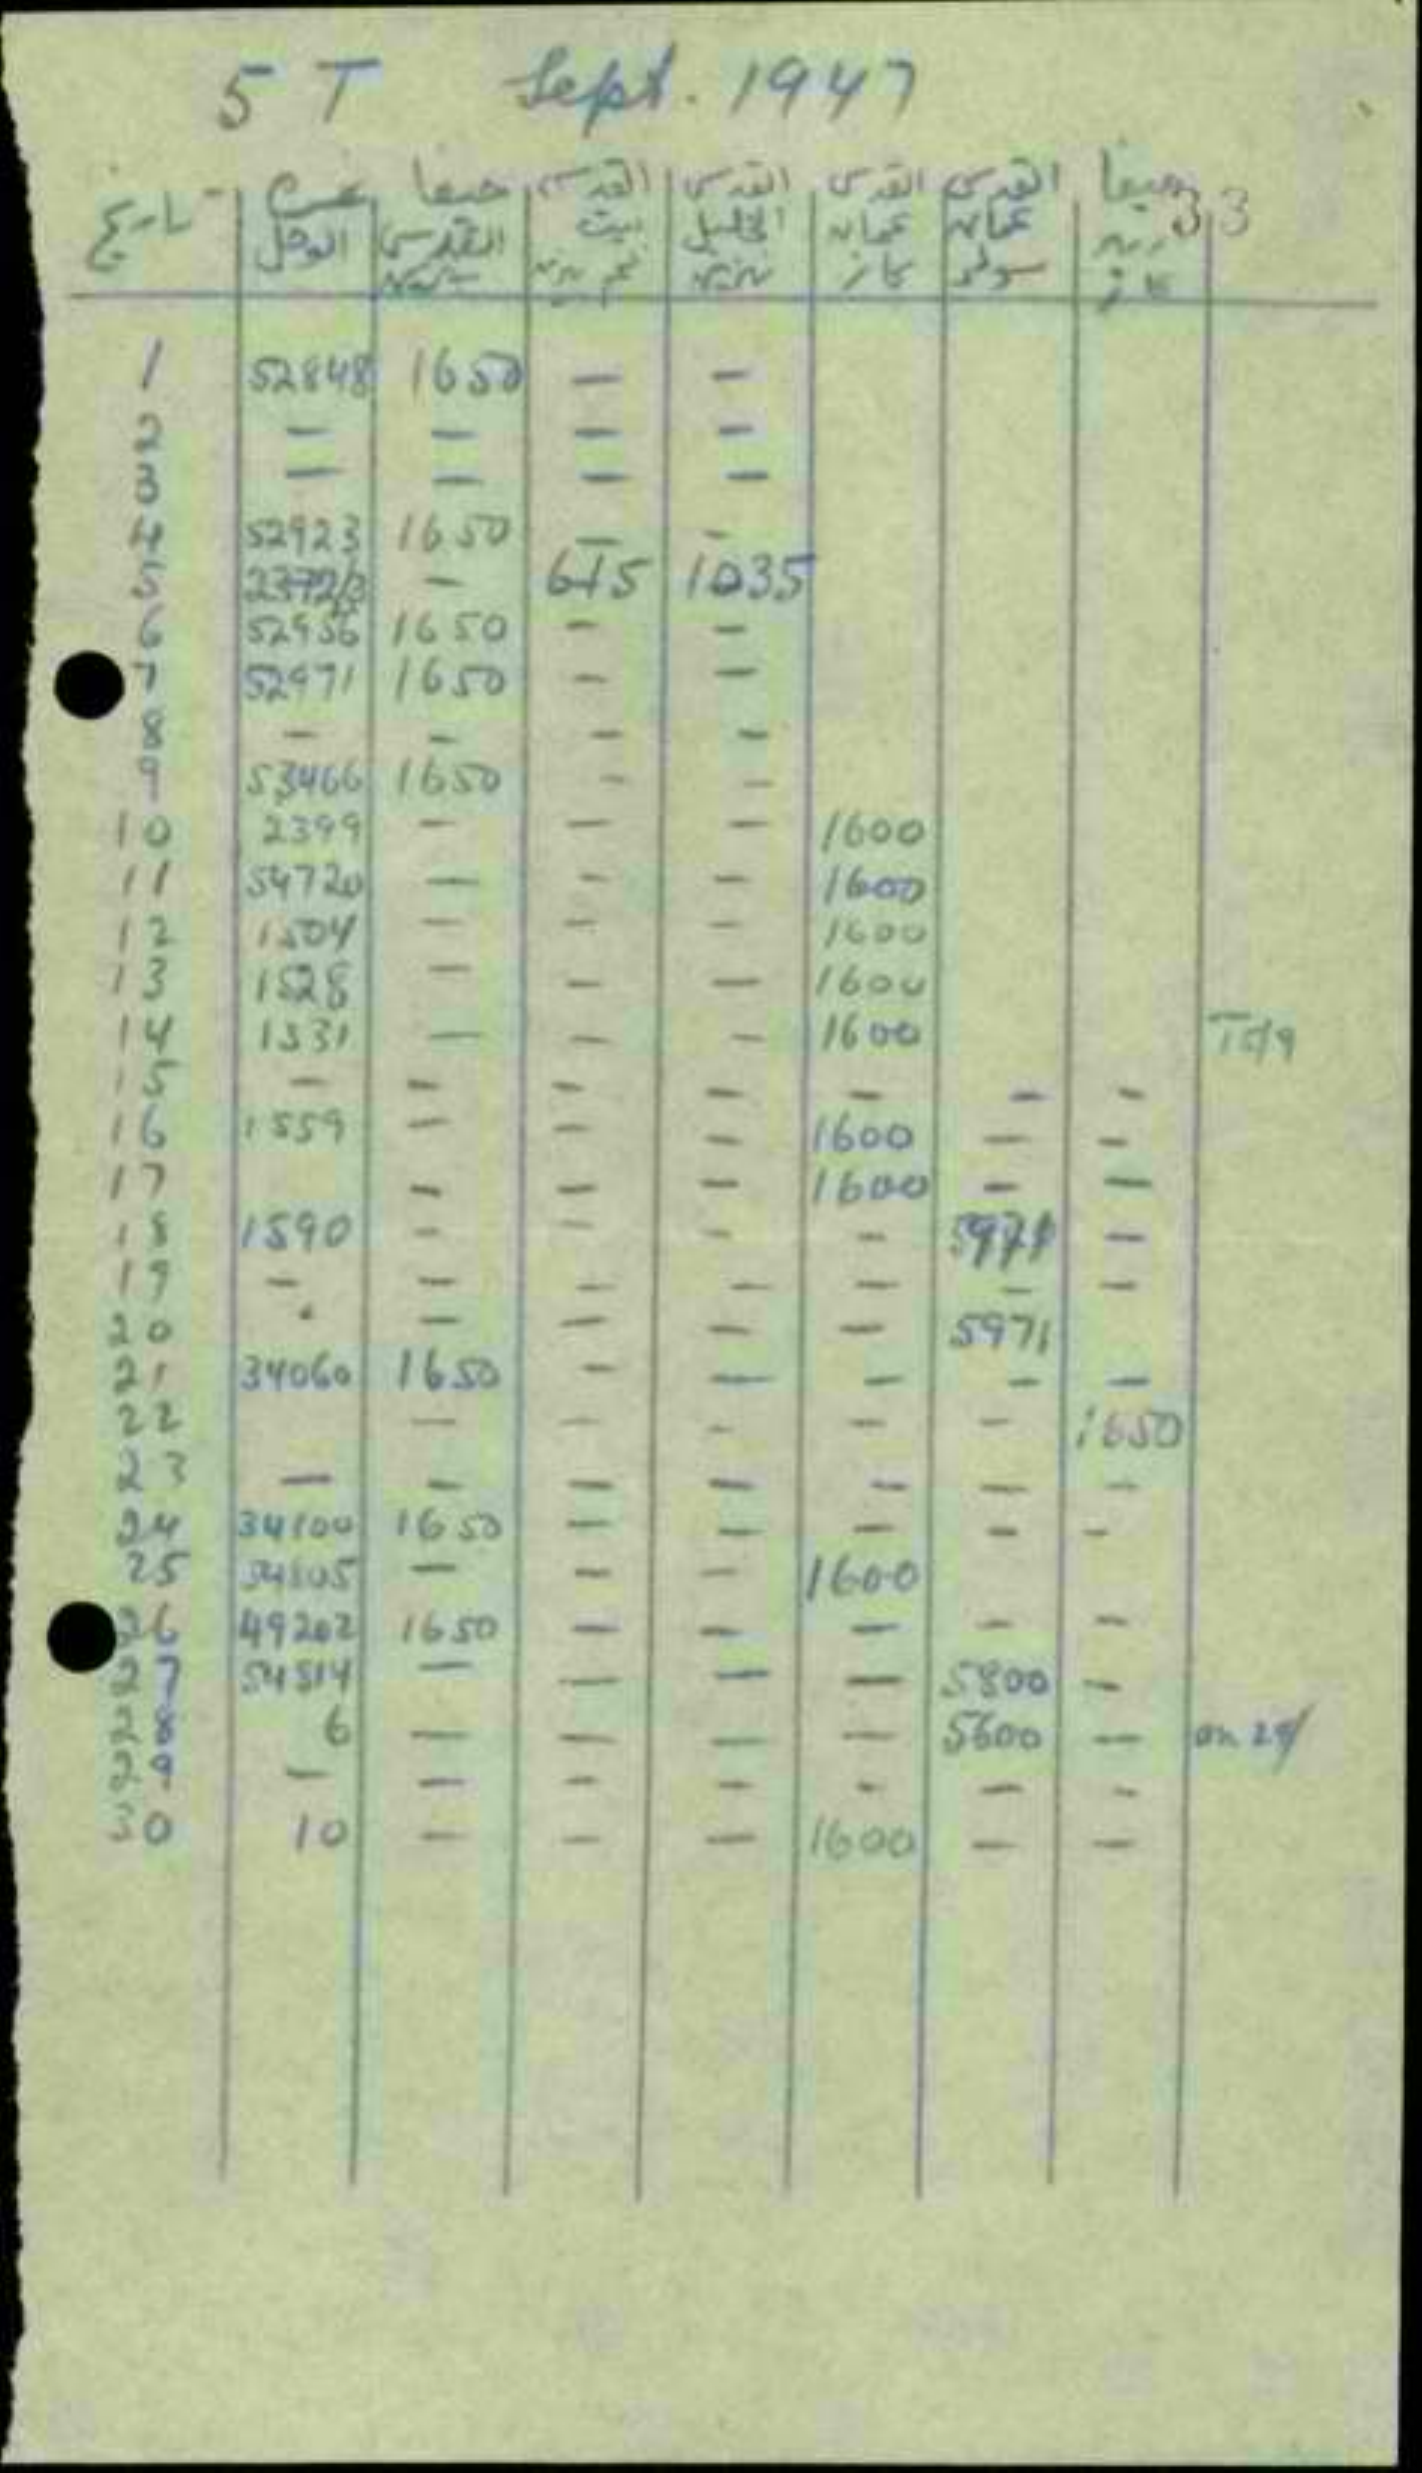 5 T Sept. 1947
33
تاريخ حيفا القدس القدس القدس القدس حيفا
القدس بيت الخليل عمان عمان
كاز كاز
1 52848 1650 — —
2 — — — —
3 — — — —
4 52923 1650 — —
5 — 615 1035
6 52956 1650 — —
7 52971 1650 — —
8 — — — —
9 53466 1650 — —
10 2399 — — — 1600
11 54720 — — — 1600
12 1504 — — — 1600
13 1528 — — — 1600
14 1531 — — — 1600
15 — — — — — — —
16 1559 — — — 1600 — —
17 — — — 1600 — —
18 1590 — — — — —
19 — — — — — — —
20 — — — — 5971
21 34060 1650 — — — — —
22 — — — — — 1650
23 — — — — — — —
24 34100 1650 — — — — —
25 — — — 1600
26 49202 1650 — — — — —
27 54514 — — — — 5800 —
28 6 — — — — 5600 — on 29/
29 — — — — — — —
30 10 — — — 1600 — —